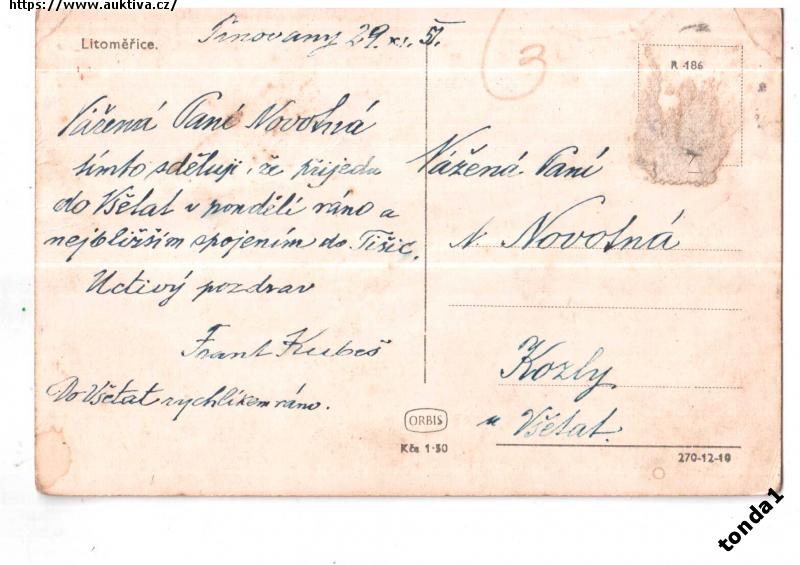 https://www.auktiva.cz/
Litoměřice.
Trnovany 29. XI. 51.
3
R 186
Vážená Paní Novotná
tímto sděluji, že přijedu
do Všetat v pondělí ráno a
nejbližším spojením do Tišic.
Uctivý pozdrav
Frant Kubeš
Do Všetat rychlíkem ráno.
Vážená Paní
N. Novotná
Kozly
u Všetat.
ORBIS
Kčs 1·50
270-12-10
tonda1